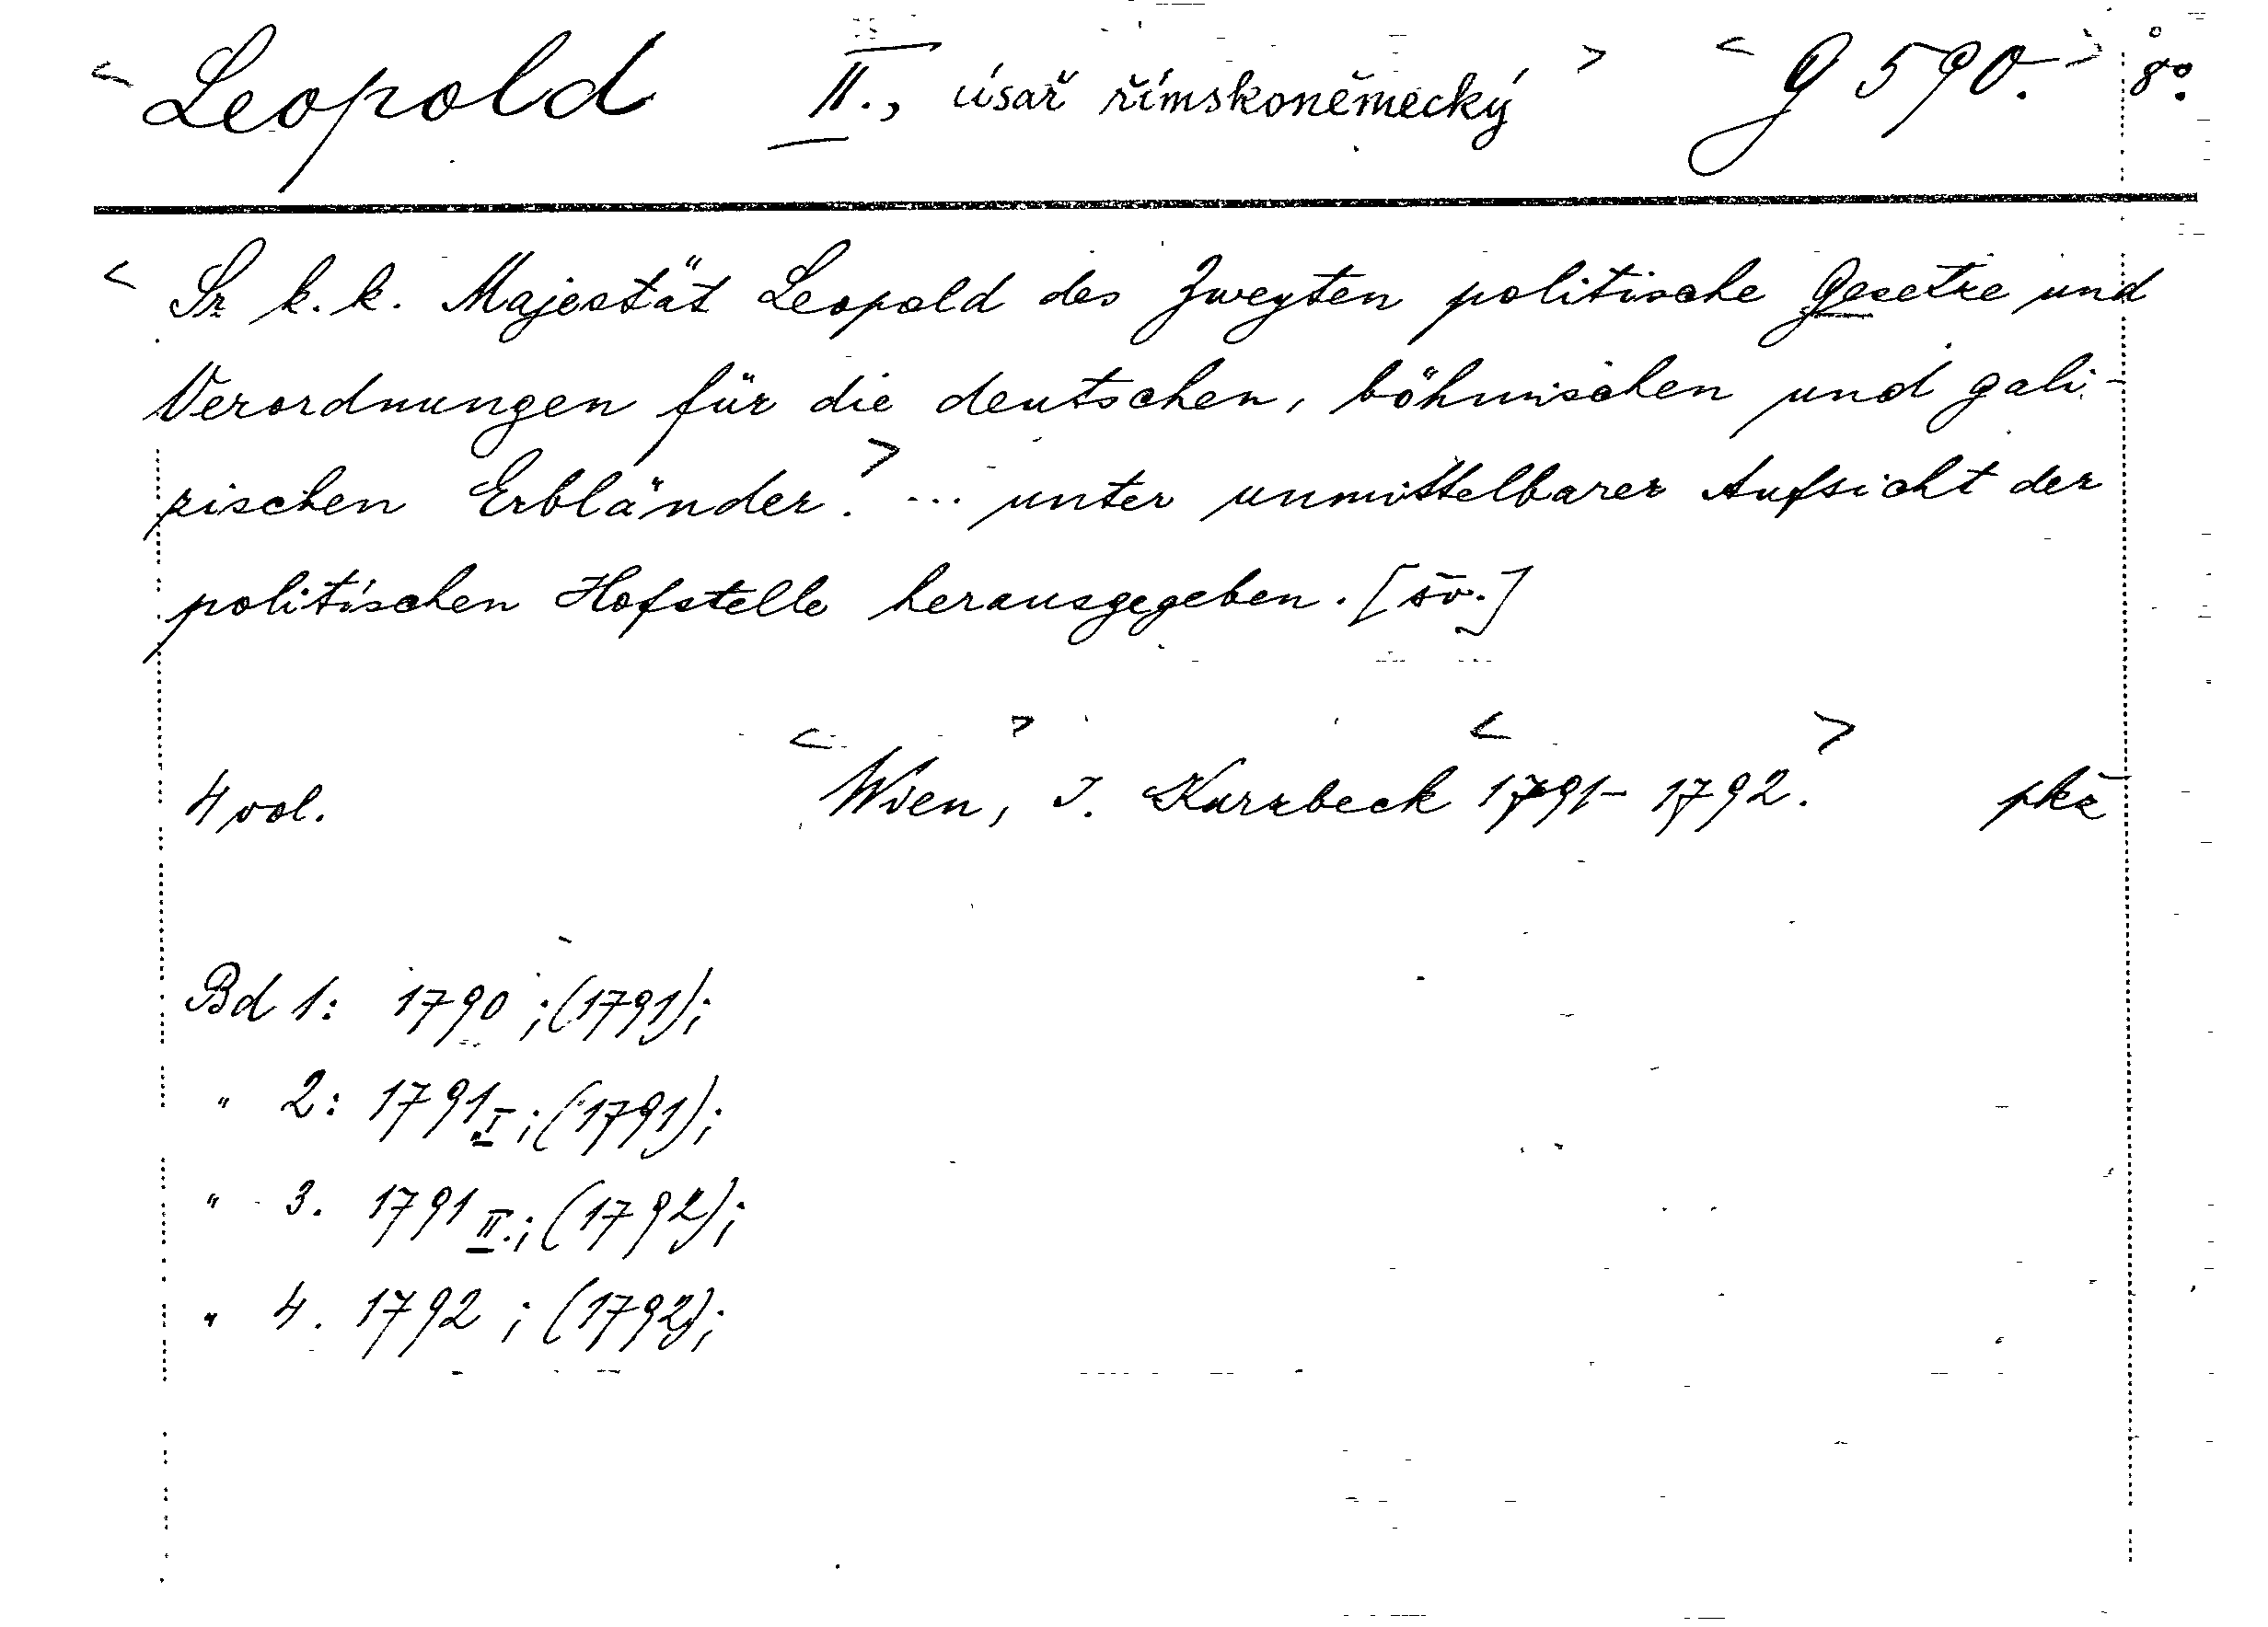 < Leopold II., císař římskoněmecký > < G 590. > 8°.
< Sr k. k. Majestät Leopold des Zweyten politische Gesetze und
Verordnungen für die deutschen, böhmischen und gali-
zischen Erbländer. > ... unter unmittelbarer Aufsicht der
politischen Hofstelle herausgegeben. [šv.]
4 vol. < Wien, > J. Kurzbeck < 1791-1792. > pkz
Bd 1: 1790 ; (1791);
" 2: 1791 I ; (1791);
" 3. 1791 II. ; (1792);
" 4. 1792 ; (1792);